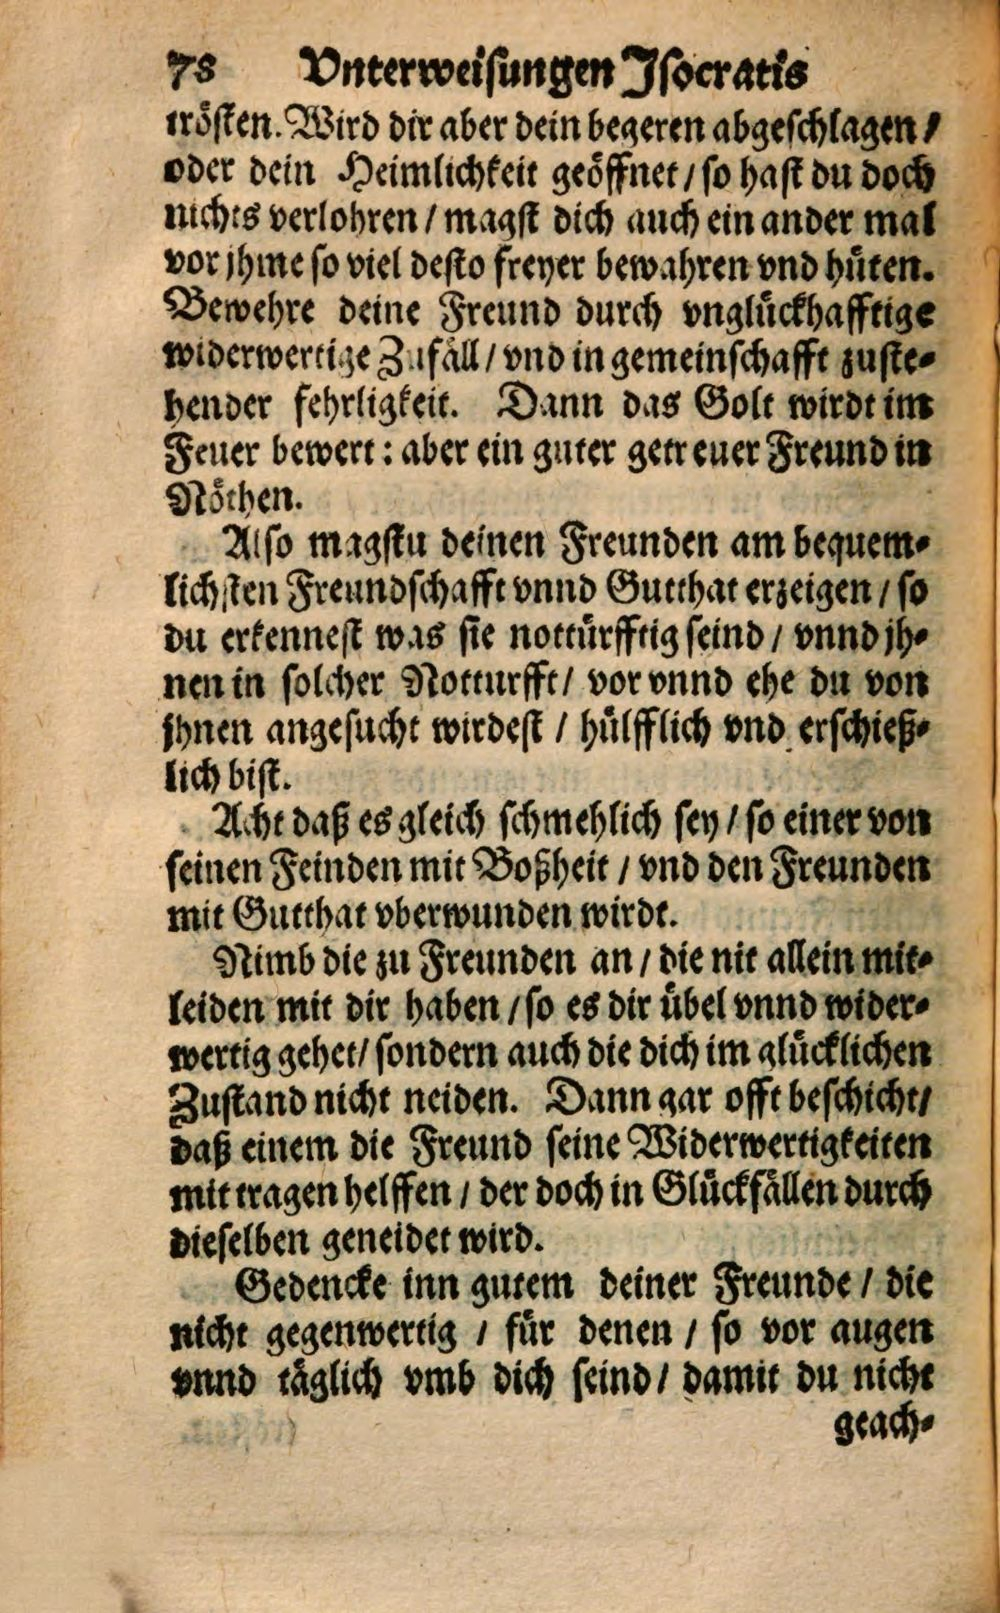 78 Vnterweisungen Jsocratis
trösten. Wird dir aber dein begeren abgeschlagen /
oder dein Heimlichkeit geöffnet / so hast du doch
nichts verlohren / magst dich auch ein ander mal
vor jhme so viel desto freyer bewahren vnd hüten.
Bewehre deine Freund durch vnglückhafftige
widerwertige Zufäll / vnd in gemeinschafft zuste-
hender fehrligkeit. Dann das Golt wirdt im
Feuer bewert: aber ein guter getreuer Freund in
Nöthen.
Also magstu deinen Freunden am bequem-
lichsten Freundschafft vnnd Gutthat erzeigen / so
du erkennest was sie nottürfftig seind / vnnd jh-
nen in solcher Notturfft / vor vnnd ehe du von
jhnen angesucht wirdest / hülfflich vnd erschieß-
lich bist.
Acht daß es gleich schmehlich sey / so einer von
seinen Feinden mit Boßheit / vnd den Freunden
mit Gutthat vberwunden wirdt.
Nimb die zu Freunden an / die nit allein mit-
leiden mit dir haben / so es dir übel vnnd wider-
wertig gehet / sondern auch die dich im glücklichen
Zustand nicht neiden. Dann gar offt beschicht /
daß einem die Freund seine Widerwertigkeiten
mit tragen helffen / der doch in Glückfällen durch
dieselben geneidet wird.
Gedencke inn gutem deiner Freunde / die
nicht gegenwertig / für denen / so vor augen
vnnd täglich vmb dich seind / damit du nicht
geach-